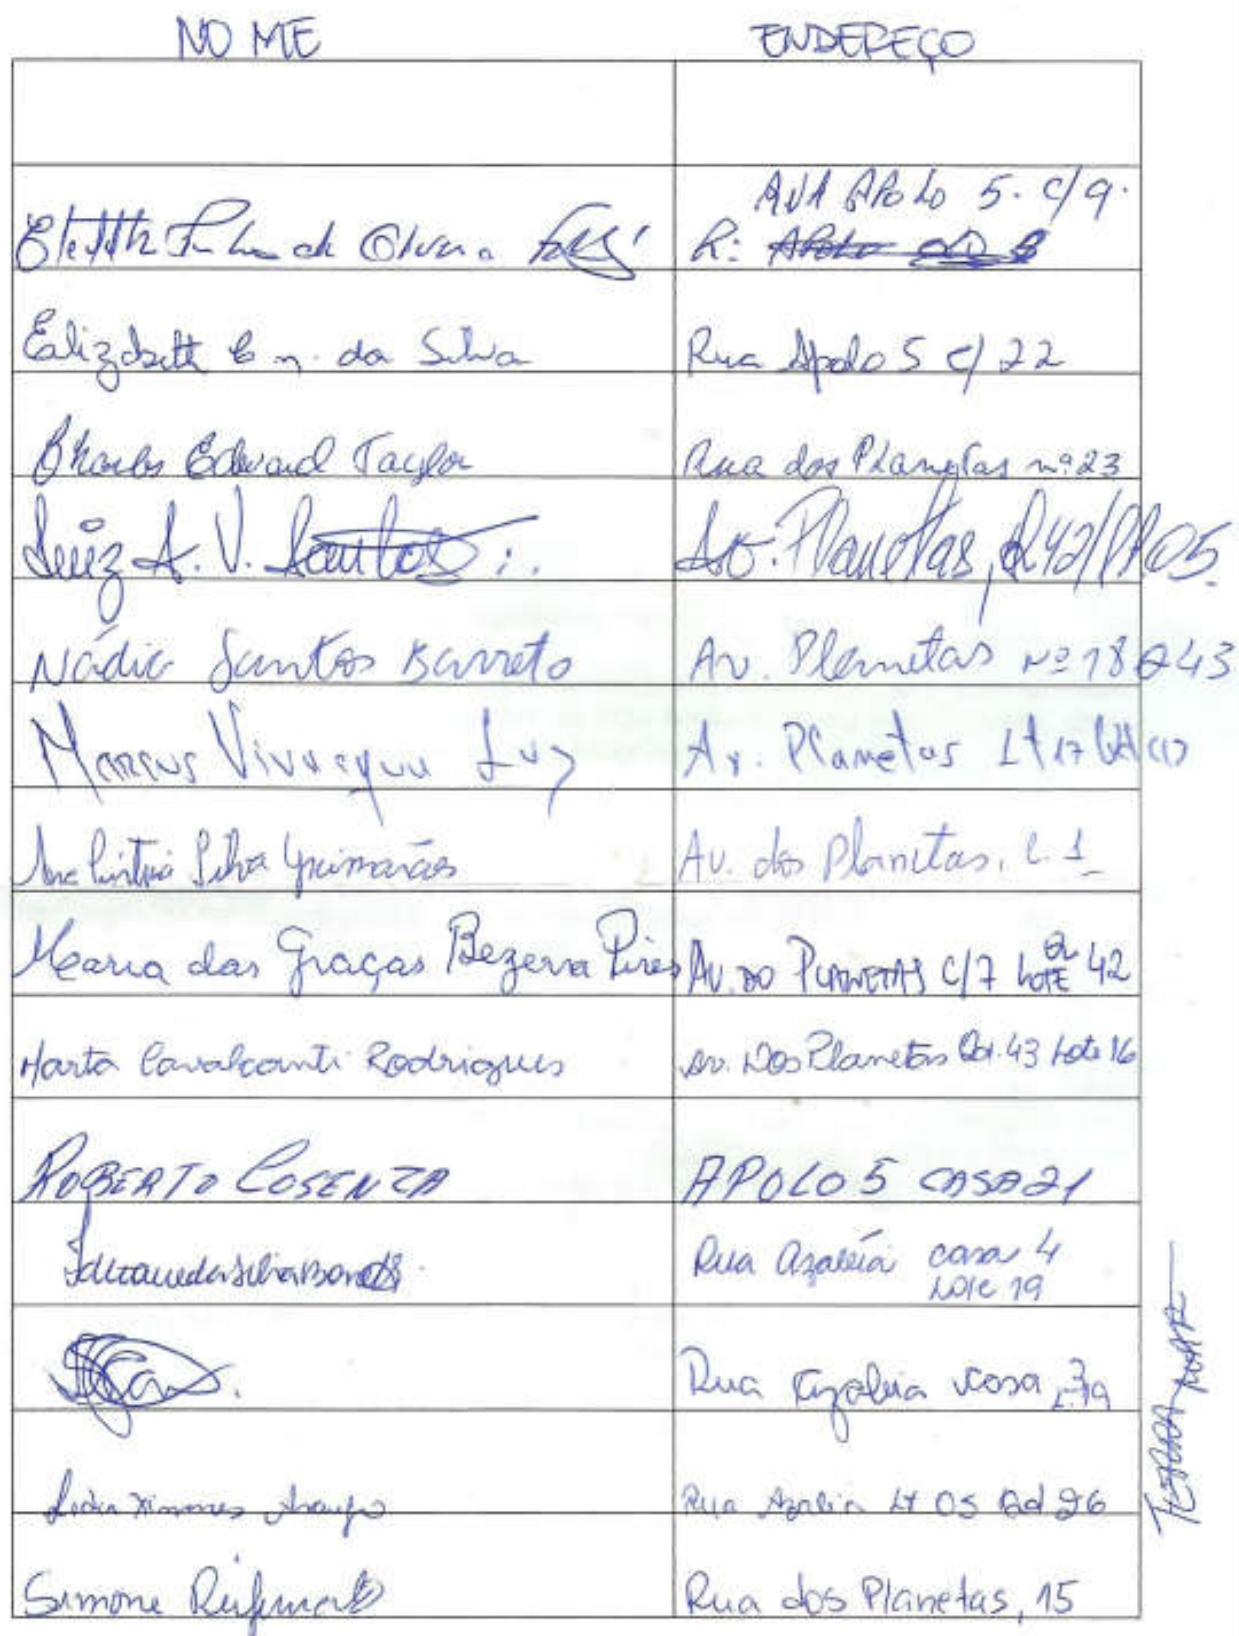 NOME ENDEREÇO
RUA APOLO 5. c/9.
de R:
Elizabeth C n. da Silva Rua Apolo 5 c/22
Charles Edward Taylor Rua dos Planetas nº 23
Luiz A. V. Santos Av. Planetas,
Nádia Santos Barreto Av. Planetas Nº 18 Q43
Marcus Vivacqua Luz Av. Planetas Lt 17
Silva Guimarães Av. dos Planetas, L. 1
Maria das Graças Bezerra Pires AV. DO PLANETAS C/7 LOTE 42
Marta Cavalcanti Rodrigues Av. Dos Planetas Qd. 43 Lote 16
ROBERTO COSENZA APOLO 5 CASA 21
Rua Azaléia casa 4
Lote 19
Rua Azaleia casa 3
L.19
Ximenes Araujo Rua Azaleia Lt 05 Qd 26
Simone Rua dos Planetas, 15